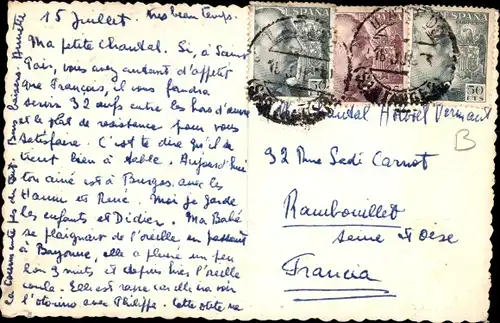 15 Juillet. Très beau temps.
Ma petite Chantal. Si, à Saint
Pair, vous avez autant d'appétit
que François, il vous faudra
servir 32 œufs entre les hors d'œuvre
et le plat de resistance pour vous
satisfaire. C'est te dire qu'il se
tient bien à table. Aujourd'hui
ton ainé est à Burgos avec les
et René. Moi je garde
les enfants et Didier. Ma Babé
se plaignait de l'oreille en passant
à Bayonne, elle a pleuré un peu
3 nuits et depuis hier l'oreille
coule. Elle est ravie car elle va voir
l'otorino avec Philippe. Cette
Bons baisers. Annette
ESPAÑA
50 CTS
ESPAÑA
ESPAÑA
50 CTS
Chantal Hottot Vermant
B
92 Rue Sadi Carnot
Rambouillet
Seine et Oise
Francia